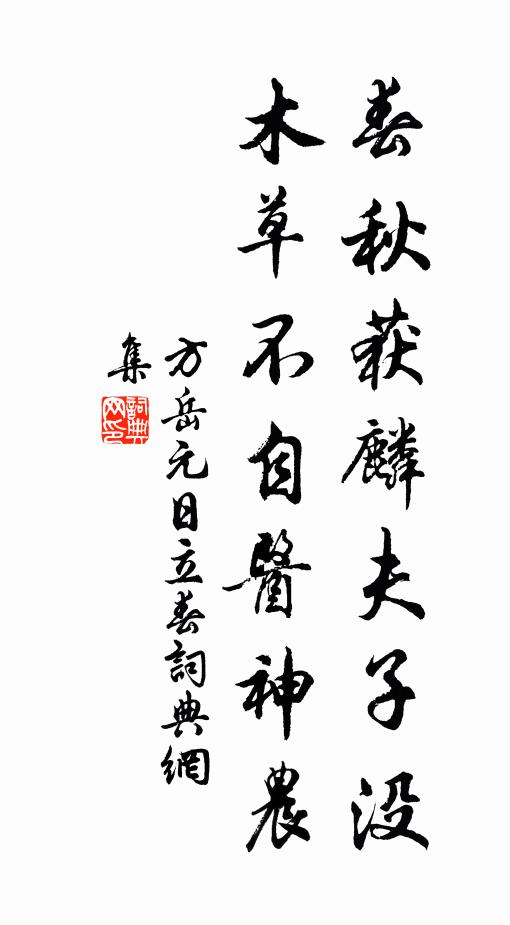 春秋获麟夫子没
木草不自醫神農
方岳元日立春詞典網
集
詞典网印